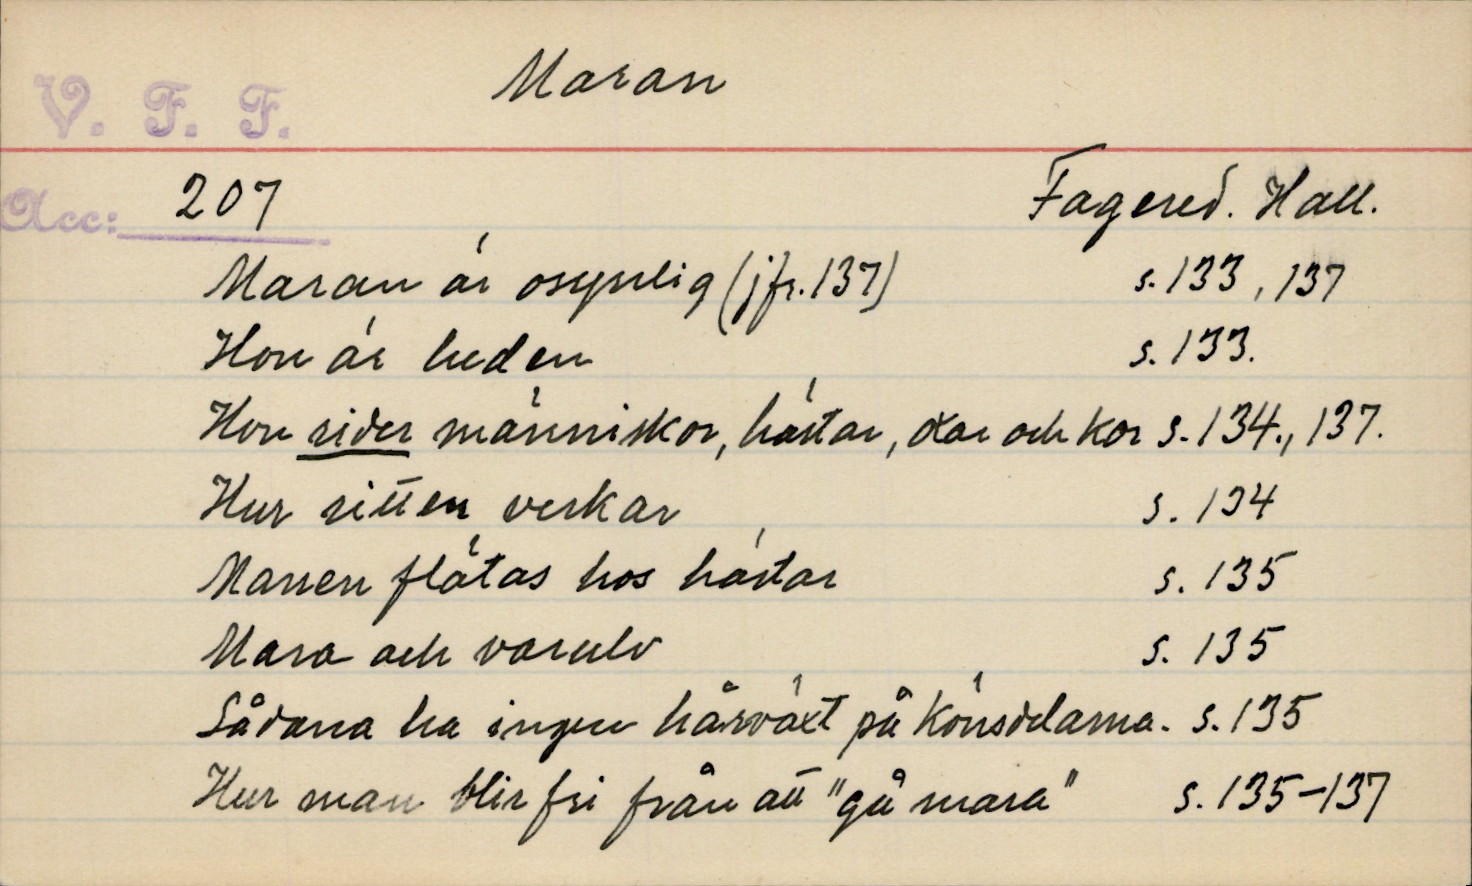 Maran
V. F. F.
Acc: 207 Fagered. Hall.
Maran är osynlig (jfr. 137) s. 133, 137
Hon är luden s. 133.
Hon rider människor, hästar, oxar och kor s. 134., 137.
Hur ritten verkar s. 134
Manen flätas hos hästar s. 135
Mara och varulv s. 135
Sådana ha ingen hårväxt på könsdelarna. s. 135
Hur man blir fri från att "gå mara" s. 135-137